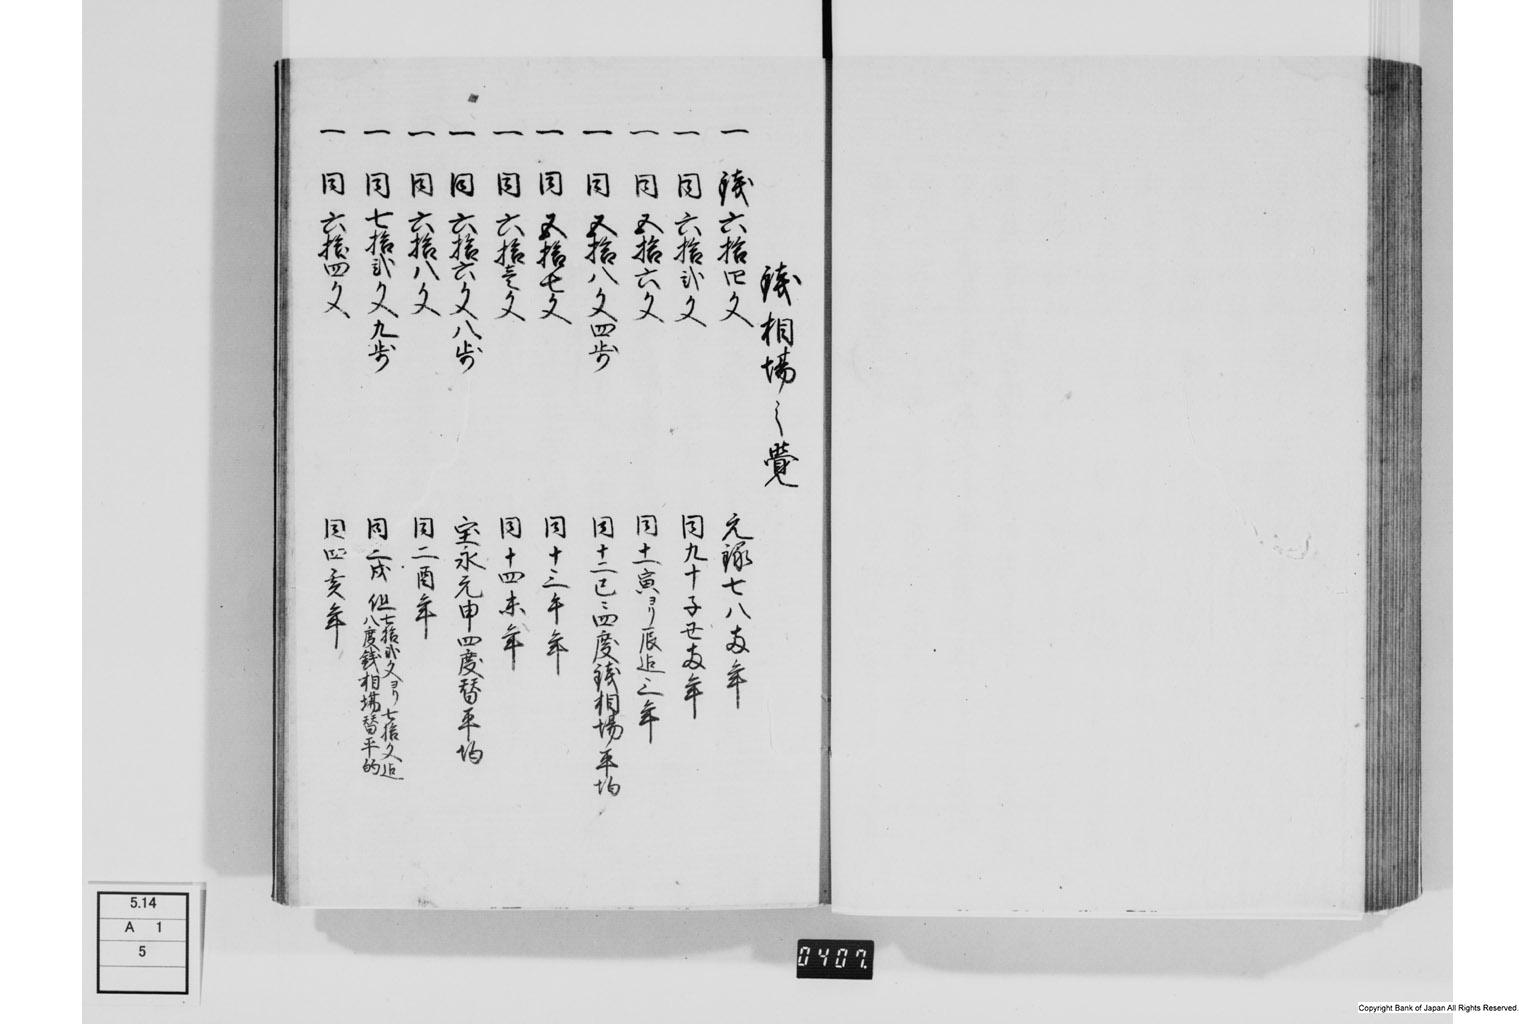 銭相場之覚
一 銭六拾四文 元禄七八両年
一 同六拾弐文 同九十子丑両年
一 同五拾六文 同十一寅ヨリ辰迄三年
一 同五拾八文四歩 同十二巳ニ四度銭相場平均
一 同五拾七文 同十三午年
一 同六拾壱文 同十四未年
一 同六拾六文八歩 宝永元申四度替平均
一 同六拾八文 同二酉年
一 同七拾弐文九歩 同二戌 但七拾弐文ヨリ七拾文迄
八度銭相場替平均
一 同六拾四文 同四亥年
5.14
A 1
5
0407
Copyright Bank of Japan All Rights Reserved.